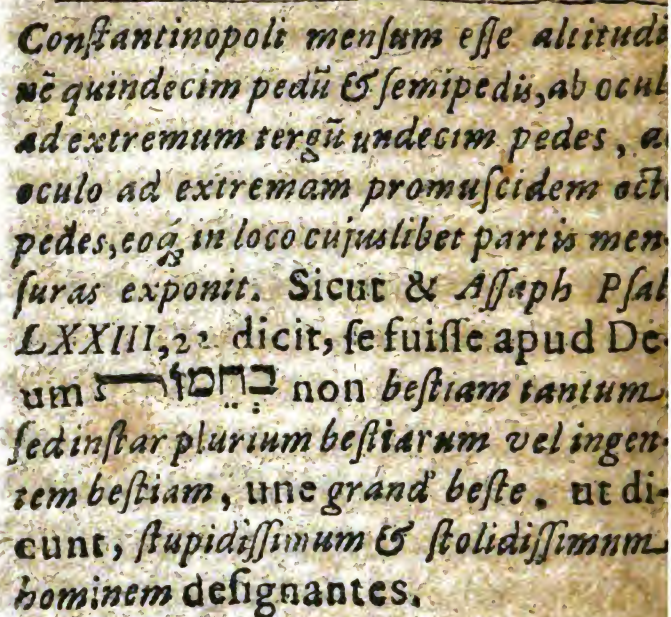 Conſtantinopoli menſum eſſe altitudi
nē quindecim pedū & ſemipedis, ab ocul
ad extremum tergū undecim pedes, a
oculo ad extremam promuſcidem oct
pedes, eoq́; in loco cujuslibet partis men
ſuras exponit. Sicut & Aſſaph Pſal
LXXIII, 22 dicit, ſe fuiſſe apud De-
um non beſtiam tantum
ſed inſtar plurium beſtiarum vel ingen
tem beſtiam, une grand' beſte, ut di-
cunt, ſtupidiſſimum & ſtolidiſſimum
hominem deſignantes.